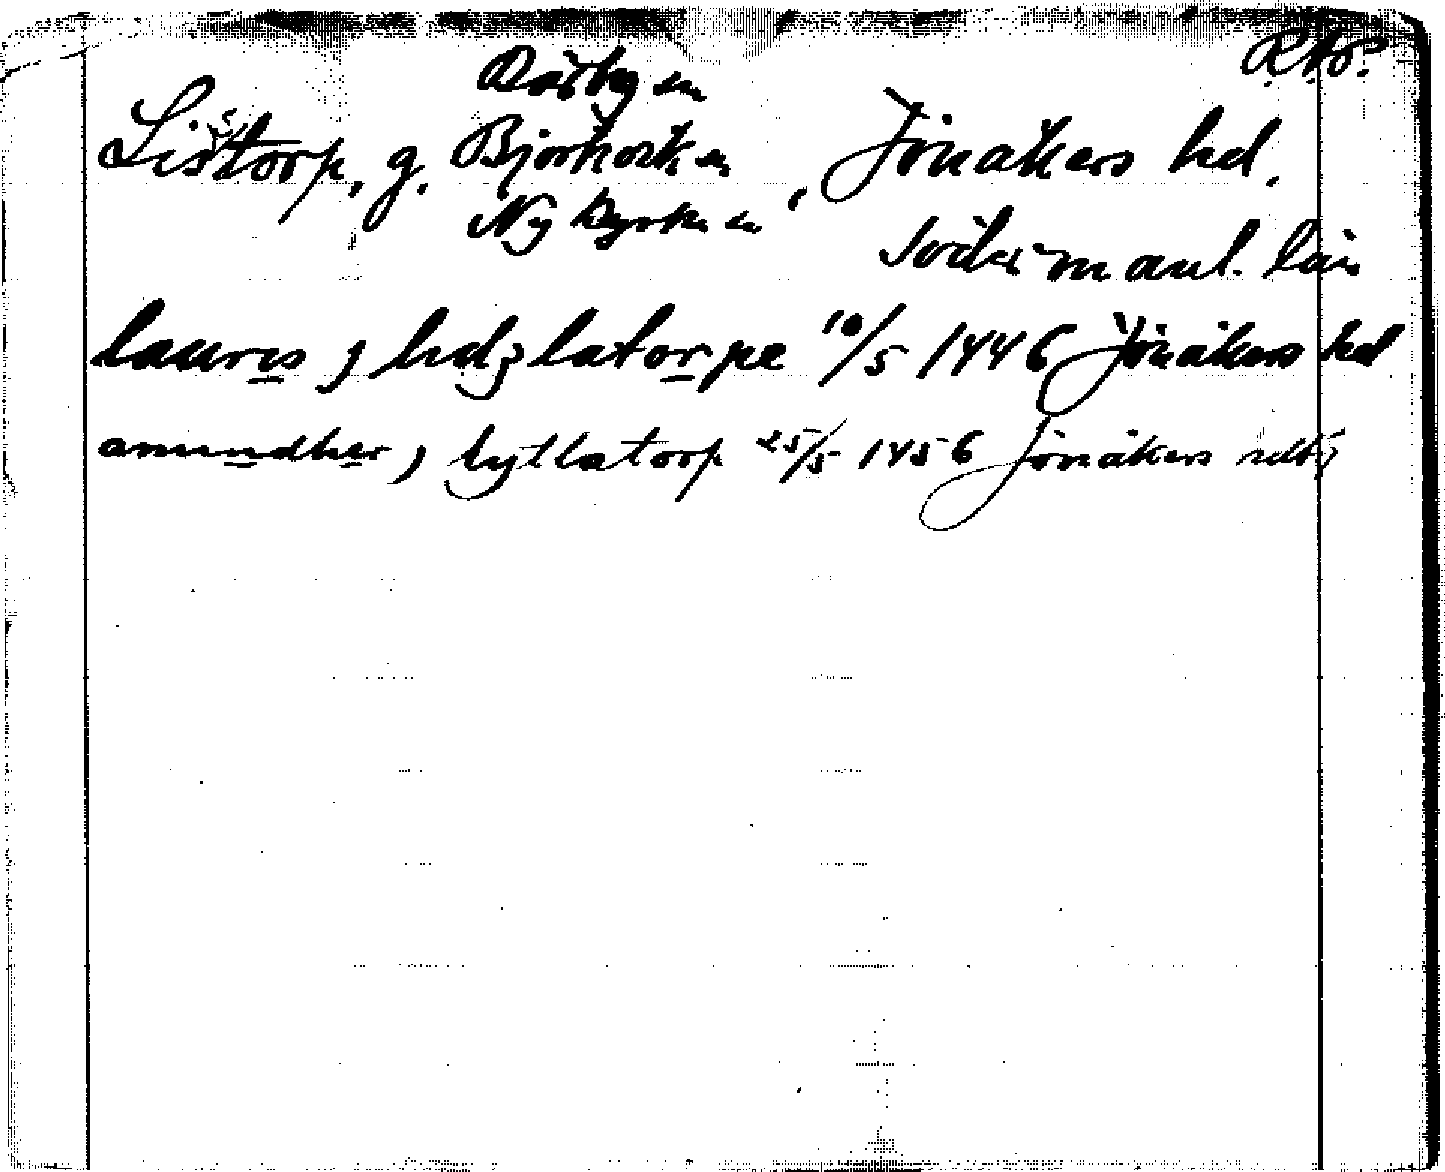 R.A.P.
Råby sn
Listorp, g. Björkvik sn, Jönåkers hd.
Ny Kyrka sn
Södermanl. län
laurus j lidzlatorpe 10/5 1446 Jönåkers hd
amundher j lyllatorp 25/5 1456 Jönåkers